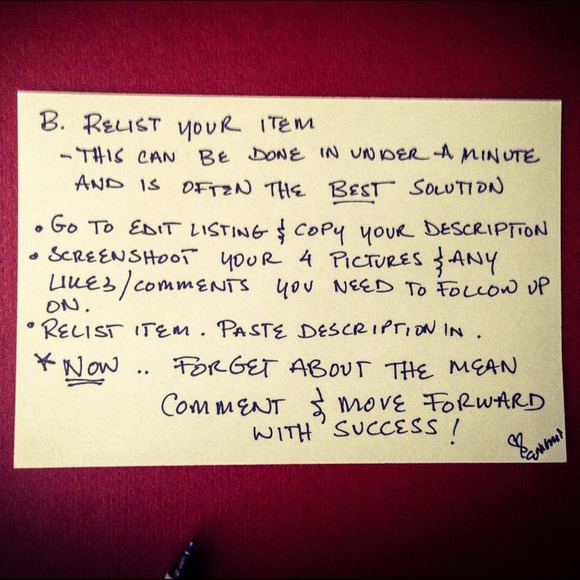 B. RELIST YOUR ITEM
- THIS CAN BE DONE IN UNDER A MINUTE
AND IS OFTEN THE BEST SOLUTION
• GO TO EDIT LISTING & COPY YOUR DESCRIPTION
• SCREENSHOOT YOUR 4 PICTURES & ANY
LIKES/COMMENTS YOU NEED TO FOLLOW UP
ON.
• RELIST ITEM. PASTE DESCRIPTION IN.
* NOW .. FORGET ABOUT THE MEAN
COMMENT & MOVE FORWARD
WITH SUCCESS!